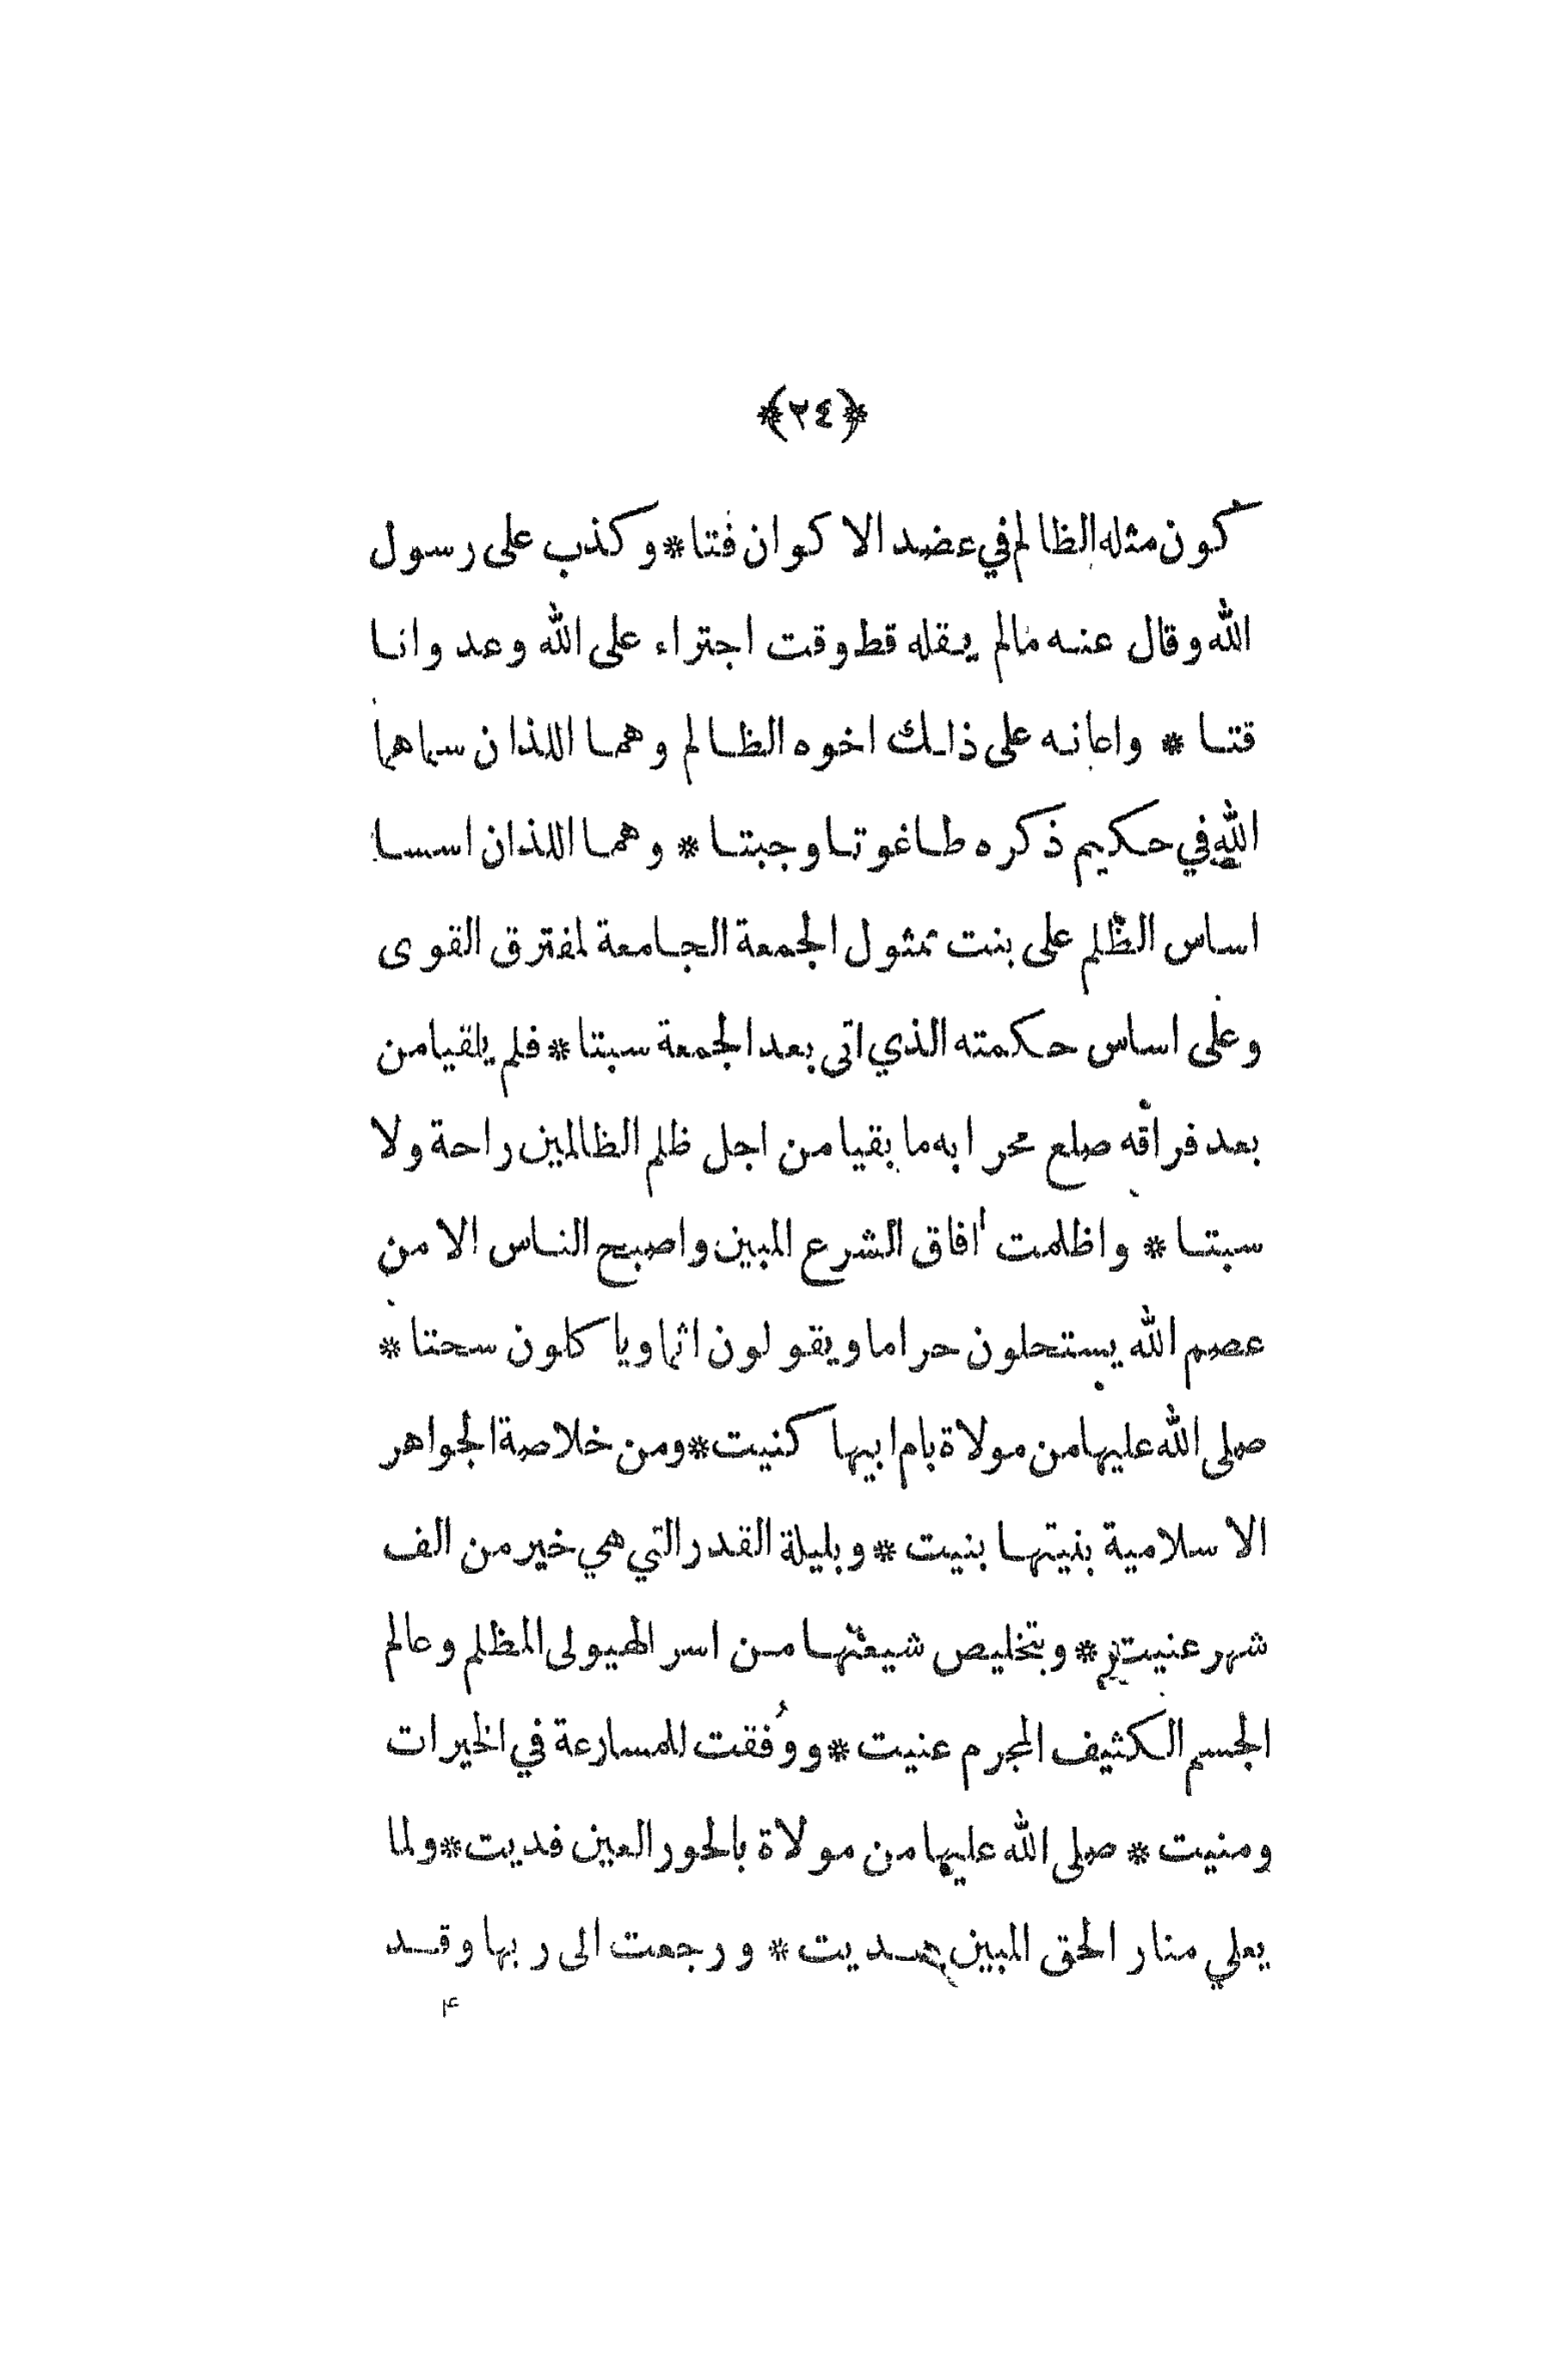 ﴿٢٤﴾
كون مثله الظالم في عضد الاكوان فتا * وكذب على رسول
الله وقال عنه مالم يقله قط وقت اجتراء على الله وعدوانا
قتا * واعانه على ذلك اخوه الظالم وهما اللذان سماهما
الله في حكيم ذكره طاغوتا وجبتا * وهما اللذان اسسا
اساس الظلم على بنت ممثول الجمعة الجامعة لمفترق القوى
وعلى اساس حكمته الذي اتى بعد الجمعة سبتا * فلم يلقيا من
بعد فراقه صلع محرابه ما بقيا من اجل ظلم الظالمين راحة ولا
سبتا * واظلمت افاق الشرع المبين واصبح الناس الا من
عصم الله يستحلون حراما ويقولون اثما وياكلون سحتا *
صلى الله عليها من مولاة بام ابيها كنيت * ومن خلاصة الجواهر
الاسلامية بنيتها بنيت * وبليلة القدر التي هي خير من الف
شهر عنيت * وبتخليص شيعتها من اسر الهيولى المظلم وعالم
الجسم الكثيف المجرم عنيت * ووُفقت للمسارعة في الخيرات
ومنيت * صلى الله عليها من مولاة بالحور العين فديت * ولما
يعلي منار الحق المبين هديت * ورجعت الى ربها وقد
۴